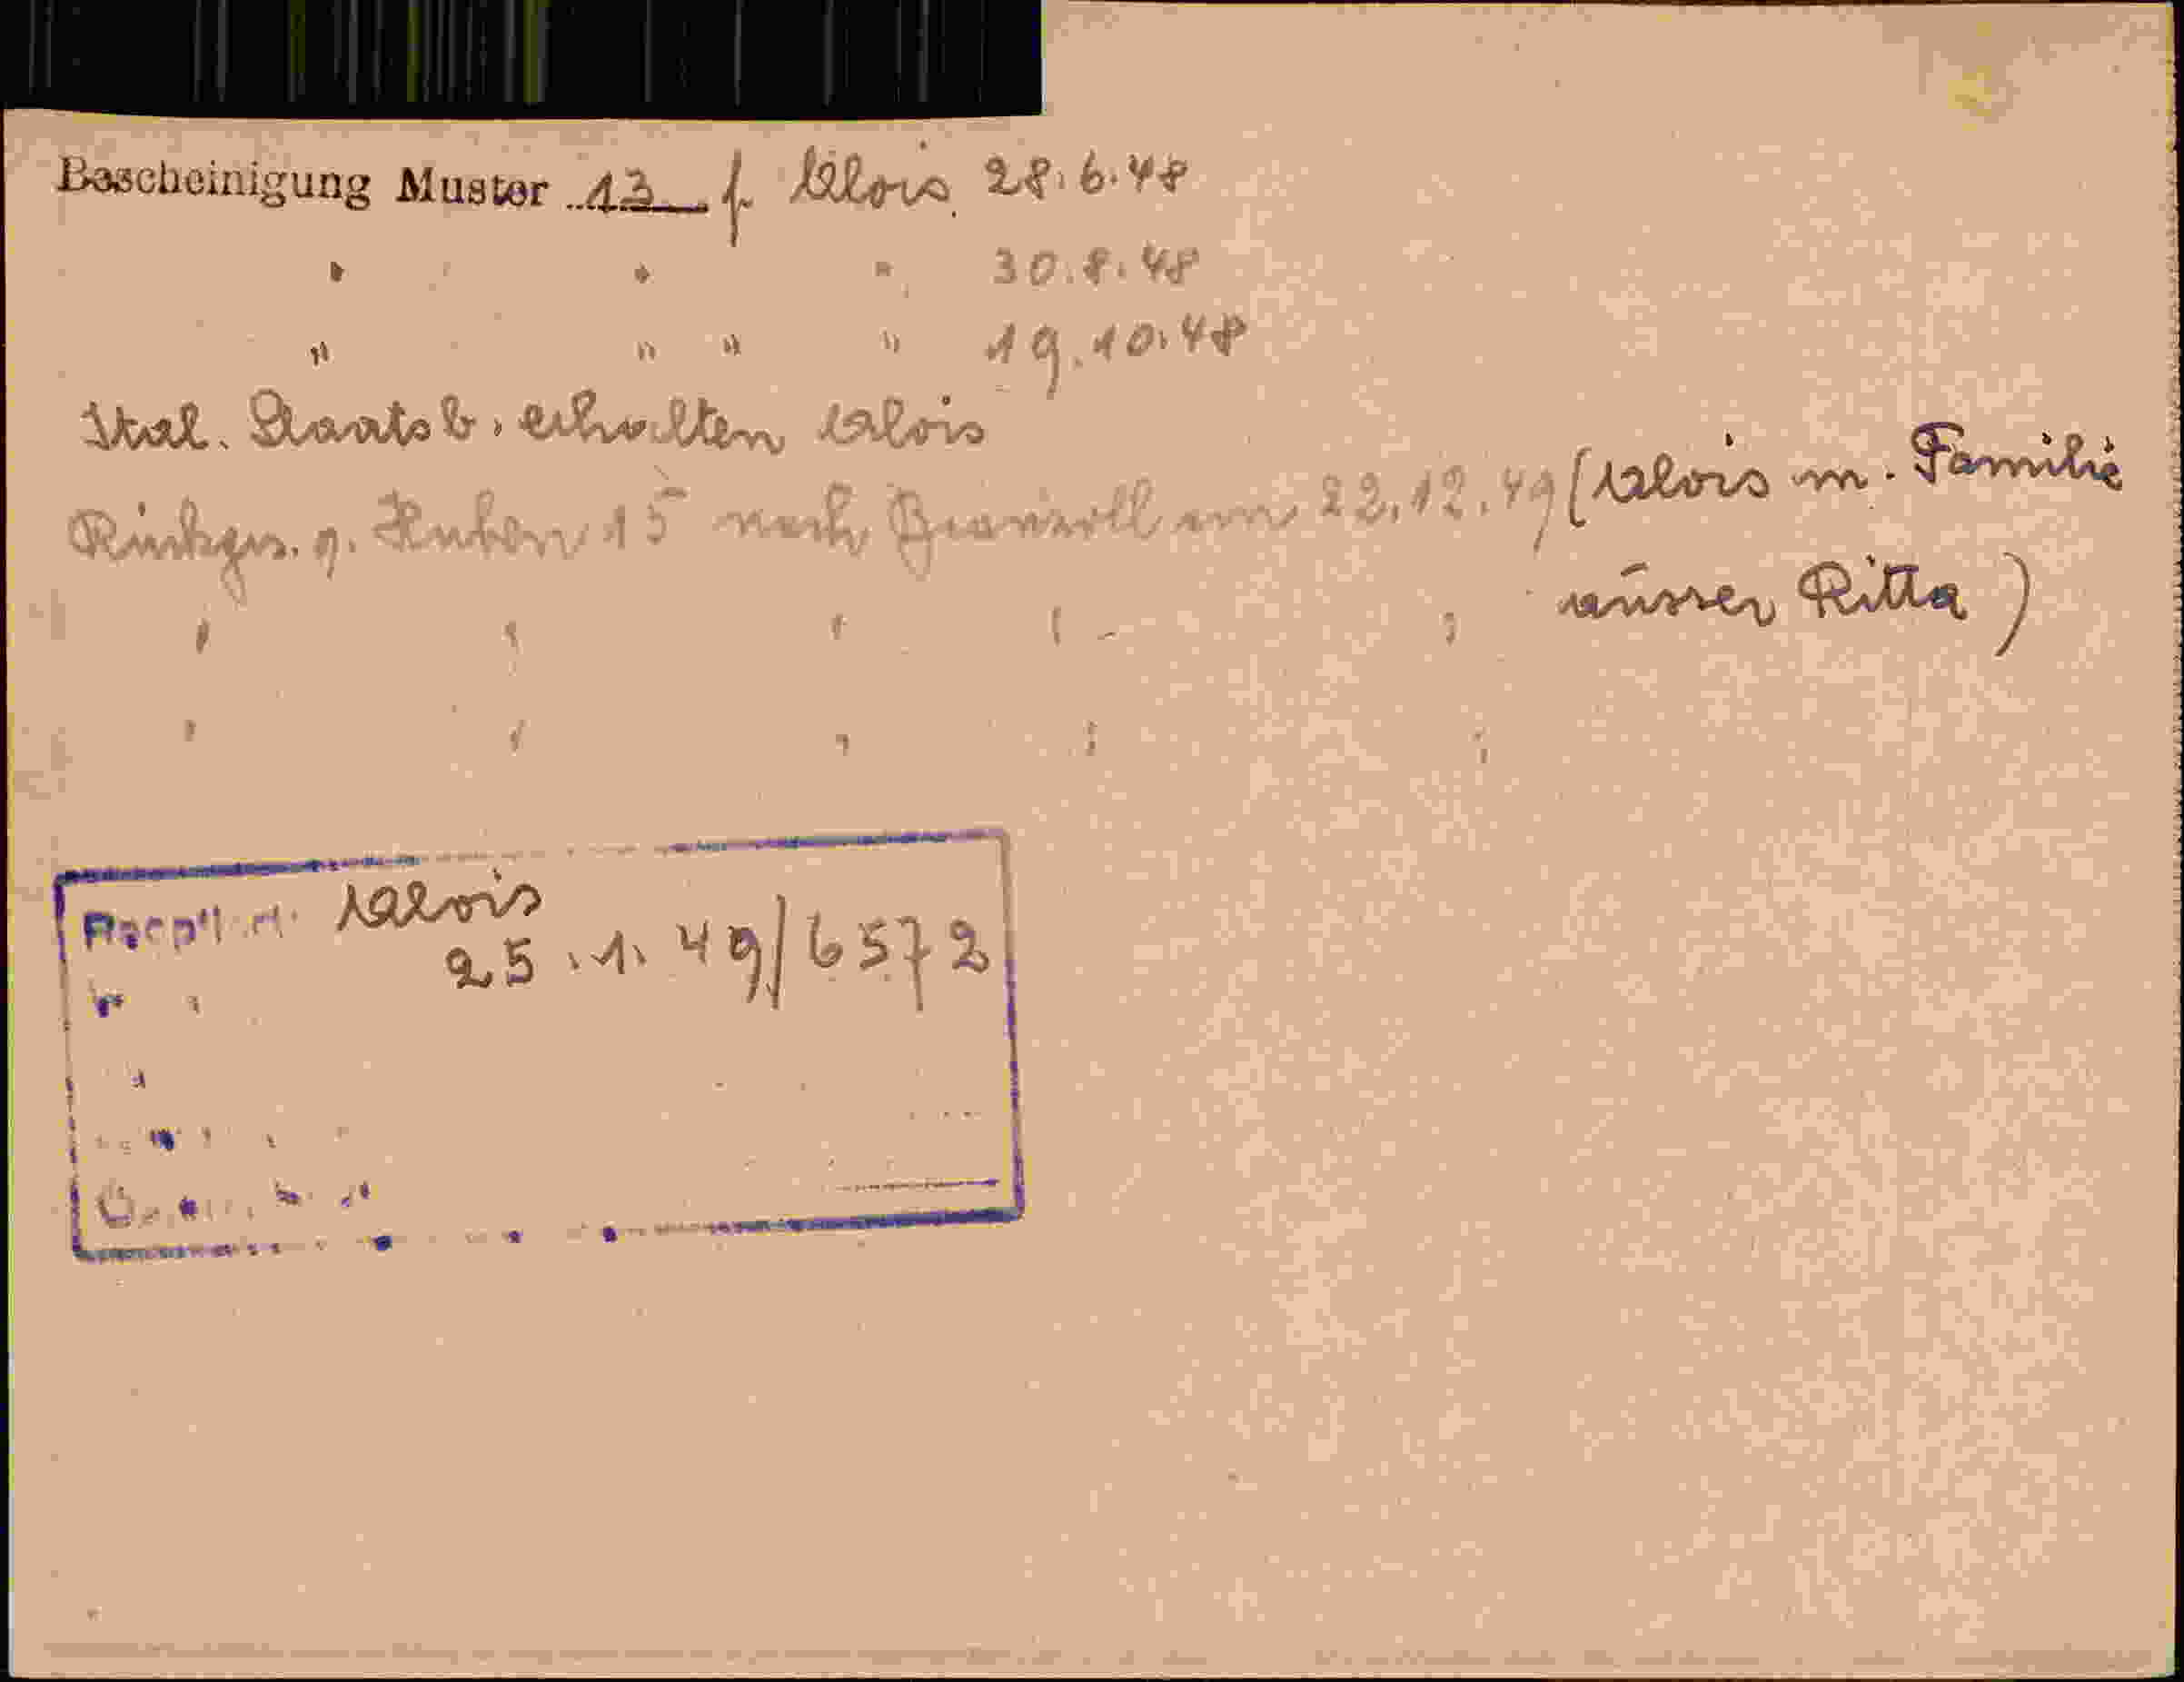 Bescheinigung Muster 13 f. Alois 28.6.48
" " " 30.8.48
" " " " 19.10.48
Ital. Staatsb. erhalten Alois
15 nach am 22.12.49 (Alois m. Familie
ausser Ritta)
Alois
25.1.49/6572